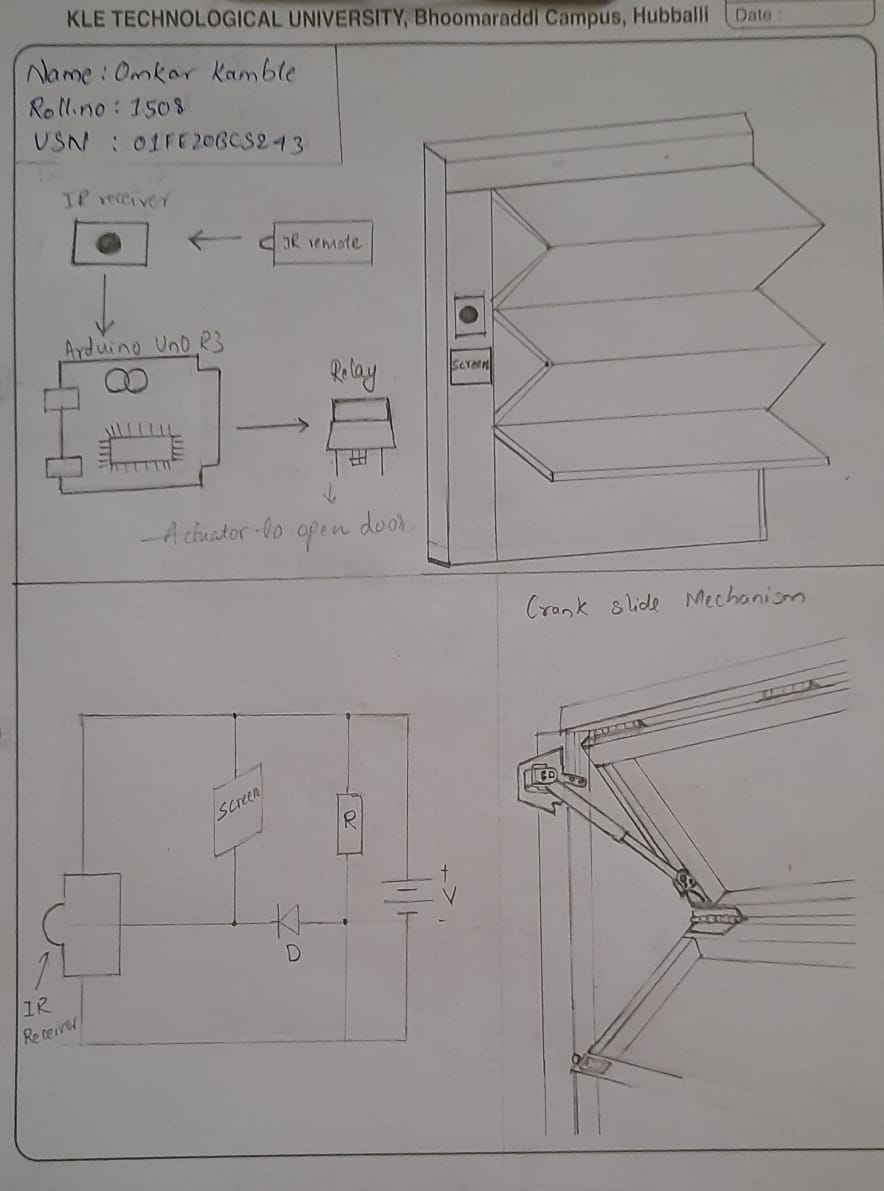 KLE TECHNOLOGICAL UNIVERSITY, Bhoomaraddi Campus, Hubballi
Date :
Name : Omkar Kamble
Roll.no : 1508
USN : 01FE20BCS243
IR receiver
IR remote
Arduino Uno R3
Relay
Actuator to open door.
Screen
Crank slide Mechanism
Screen
R
+
V
-
D
IR
Receiver